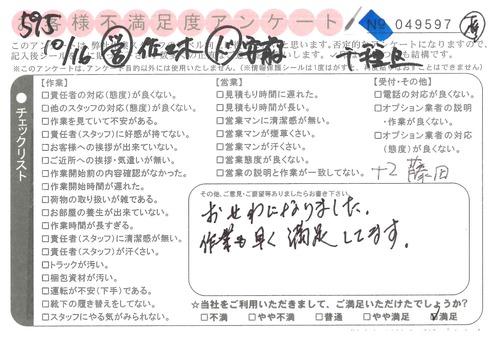 595 お客様不満足度アンケート No 049597
10/16 営 佐々木
記入後シール
※このアンケートは、アンケート目的以外には使いたしません。
チェックリスト
【作業】
□責任者の対応(態度)が良くない。
□他のスタッフの対応(態度)が良くない。
□作業を見ていて不安がある。
□責任者(スタッフ)に好感が持てない。
□お客様への挨拶が出来ていない。
□ご近所への挨拶・気遣いが無い。
□作業開始前の内容確認がなかった。
□作業開始時間が遅れた。
□荷物の取り扱いが雑である。
□お部屋の養生が出来ていない。
□作業時間が長すぎる。
□責任者(スタッフ)に清潔感が無い。
□責任者(スタッフ)が汗くさい。
□トラックが汚い。
□梱包資材が汚い。
□運転が不安(下手)である。
□靴下の履き替えをしてない。
□スタッフにやる気がみられない。
【営業】
□見積もり時間に遅れた。
□見積もり時間が長い。
□営業マンに清潔感が無い。
□営業マンが煙草くさい。
□営業マンが汗くさい。
□営業態度が良くない。
□営業の説明と作業が一致してない。
【受付・その他】
□電話の対応が良くない。
□オプション業者の説明
・作業が良くない。
□オプション業者の対応
(態度)が良くない。
+2 藤田
その他、ご意見・ご要望等ありましたらお書き下さい。
おせわになりました。
作業も早く満足してます。
☆当社をご利用いただきまして、ご満足いただけたでしょうか?
□不満 □やや不満 □普通 □やや満足 ☑満足